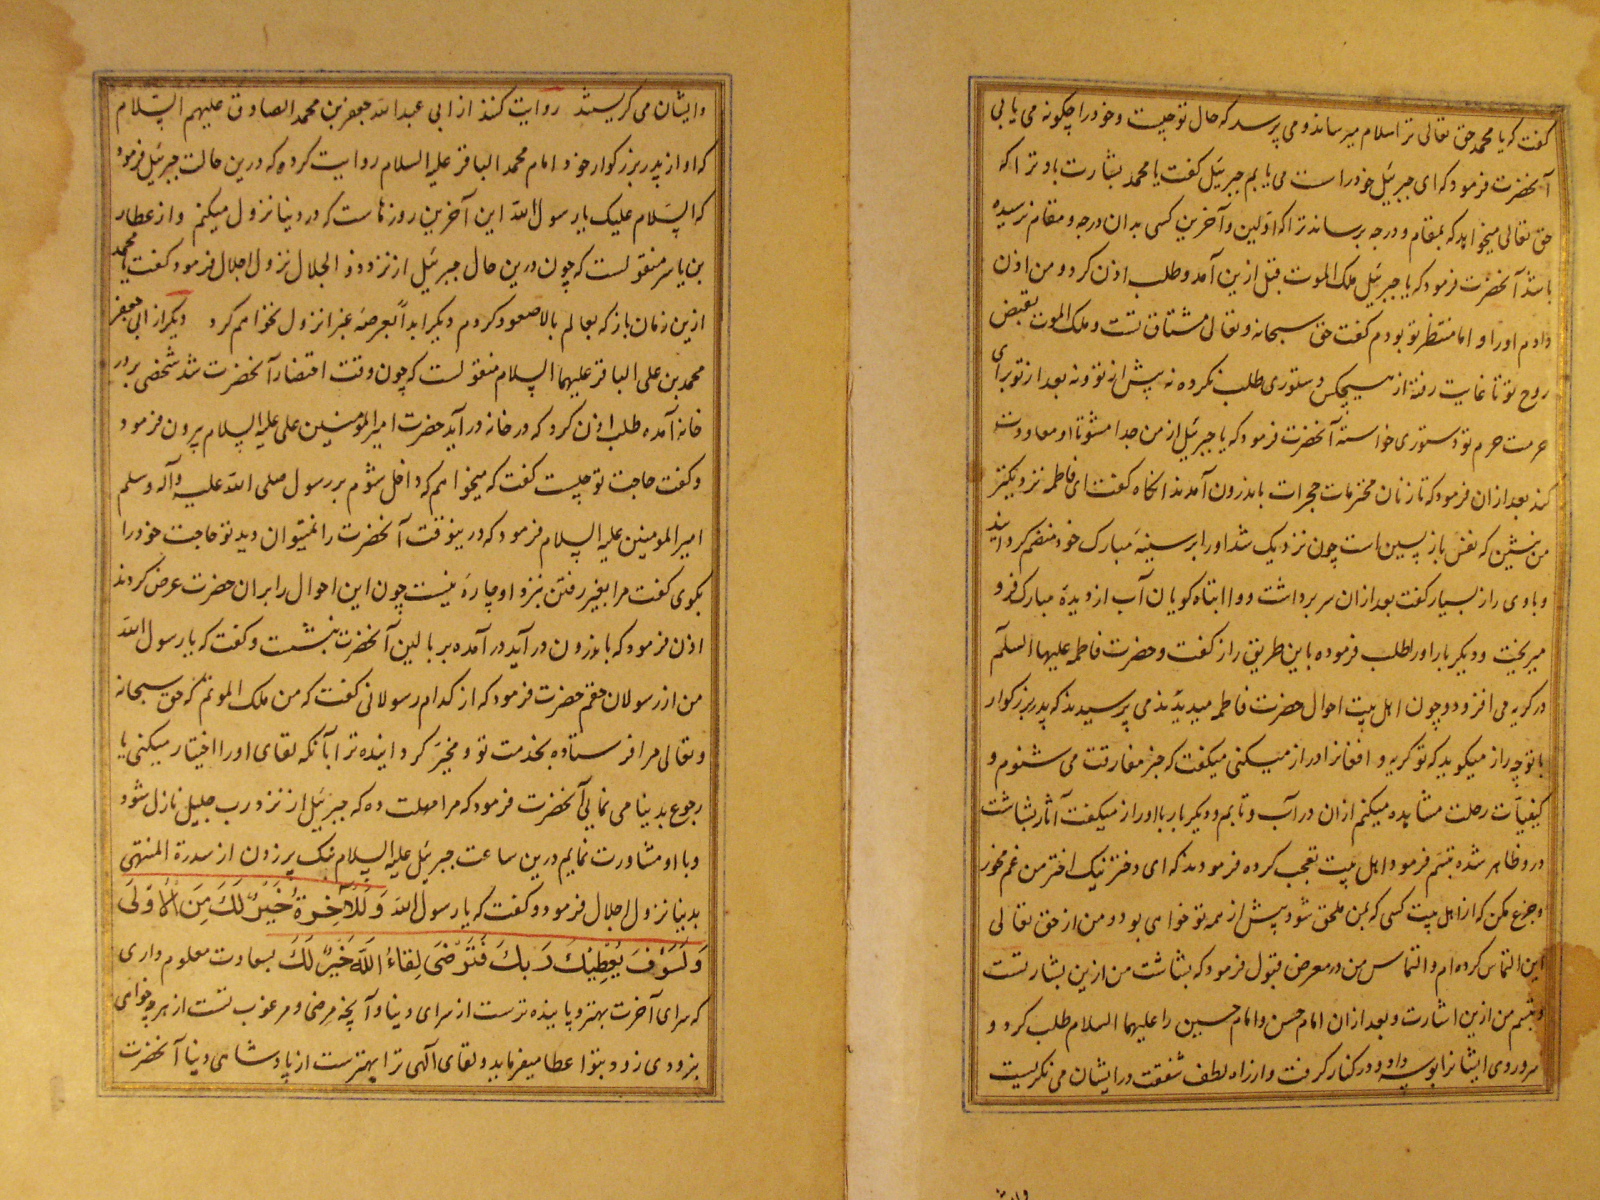 گفت که یا محمد حق تعالی ترا سلام میرساند و می پرسد که حال تو چیست و خود را چگونه می یابی
آنحضرت فرمود که ای جبرئیل خود راست می یابم جبرئیل گفت یا محمد بشارت باد ترا که
حق تعالی میخواهد که بمقام و درجه برساند ترا که اولین و آخرین کسی بدان درجه و مقام نرسیده
باشد آنحضرت فرمود که یا جبرئیل ملک الموت قبل ازین آمد و طلب اذن کرد و من اذن
دادم او را و اما منتظر تو بودم گفت حق سبحانه و تعالی مشتاق تست و ملک الموت بقبض
روح تو تا غایت رفته از هیچکس دستوری طلب نکرده نه پیش از تو و نه بعد از تو برای
حرمت حرم تو دستوری خواسته آنحضرت فرمود که یا جبرئیل از من جدا مشو تا او معاودت
کند بعد ازان فرمود که تا زنان محترمات حجرات باندرون آمدند انکاه گفت ای فاطمه نزدیکتر
من بنشین که نفس باز پسین است چون نزدیک شد او را بر سینهٔ مبارک خود منضم گردانید
و با وی راز بسیار گفت بعد ازان سر برداشت و وا ابتاه گویان آب از دیدهٔ مبارک فرو
میریخت و دیگر بار او را طلب فرموده باین طریق راز گفت و حضرت فاطمه علیها السلام
در گریه می افزود و چون اهل بیت احوال حضرت فاطمه میدیدند می پرسیدند که پدر بزرگوار
با تو چه راز میگوید که تو گریه و افغان را دراز میکنی میگفت که خبر مفارقت می شنوم و
کیفیات رحلت مشاهده میکنم ازان در آب و تابم و دیگر بار با او راز میگفت آثار بشاشت
درو ظاهر شده تبسم فرمود اهل بیت تعجب کرده فرمودند که ای دختر نیک اختر من غم مخور
و جزع مکن که از اهل بیت کسی که بمن ملحق شود پیش از همه تو خواهی بود و من از حق تعالی
این التماس کرده ام و التماس من در معرض قبول فرمود که بشاشت من ازین بشارتست
و تبسم من ازین اشارت و بعد ازان امام حسن و امام حسین را علیهما السلام طلب کرد و
سر و روی ایشانرا بوسه داد و در کنار گرفت و از راه لطف و شفقت در ایشان می نگریست
و ایشان می گریستند روایت کنند از ابی عبدالله جعفر بن محمد الصادق علیهم السلام
که او از پدر بزرگوار خود امام محمد الباقر علیه السلام روایت کرده که درین حالت جبرئیل فرمود
که السلام علیک یا رسول الله این آخرین روزهاست که در دنیا نزول میکنم و از عطار
بن یاسر منقولست که چون درین حال جبرئیل از نزد ذو الجلال نزول اجلال فرمود گفت یا محمد
ازین زمان باز که بعالم بالا صعود کردم دیگر ابداً بعرصهٔ غبرا نزول نخواهم کرد دیگر از ابی جعفر
محمد بن علی الباقر علیهما السلام منقولست که چون وقت احتضار آنحضرت شد شخصی بر در
خانه آمده طلب اذن کرد که در خانه در آید حضرت امیر المؤمنین علی علیه السلام بیرون فرمود
و گفت حاجت تو چیست گفت که میخواهم که داخل شوم بر رسول صلی الله علیه و آله و سلم
امیر المومنین علیه السلام فرمود که درینوقت آنحضرت را نمیتوان دید تو حاجت خود را
بگوی گفت مرا بغیر رفتن نزد او چاره نیست چون این احوال را بران حضرت عرض کردند
اذن فرمود که باندرون در آید در آمده بر بالین آنحضرت بنشست و گفت که یا رسول الله
من از رسولان حقم حضرت فرمود که از کدام رسولانی گفت که من ملک الموتم که حق سبحانه
و تعالی مرا فرستاده بخدمت تو و مخیر گردانیده ترا با آنکه لقای او را اختیار میکنی یا
رجوع بدینا می نمایی آنحضرت فرمود که مرا مهلت ده که جبرئیل از نزد رب جلیل نازل شود
و با او مشاورت نمایم درین ساعت جبرئیل علیه السلام نیک پر زدن از سدرة المنتهی
بدینا نزول اجلال فرمود و گفت که یا رسول الله وَلَلْآخِرَةُ خَيْرٌ لَكَ مِنَ الْأُولَى
وَلَسَوْفَ يُعْطِيكَ رَبُّكَ فَتَرْضَى لِقَاءُ اللَّهِ خَيْرٌ لَكَ بسعادت معلوم داری
که سرای آخرت بهتر و پاینده ترست از سرای دنیا و آنچه مرضی و مرغوب تست از هر چه خواهی
بزودی زود بتو اعطا میفرماید و لقای الهی ترا بهترست از پادشاهی دنیا آنحضرت